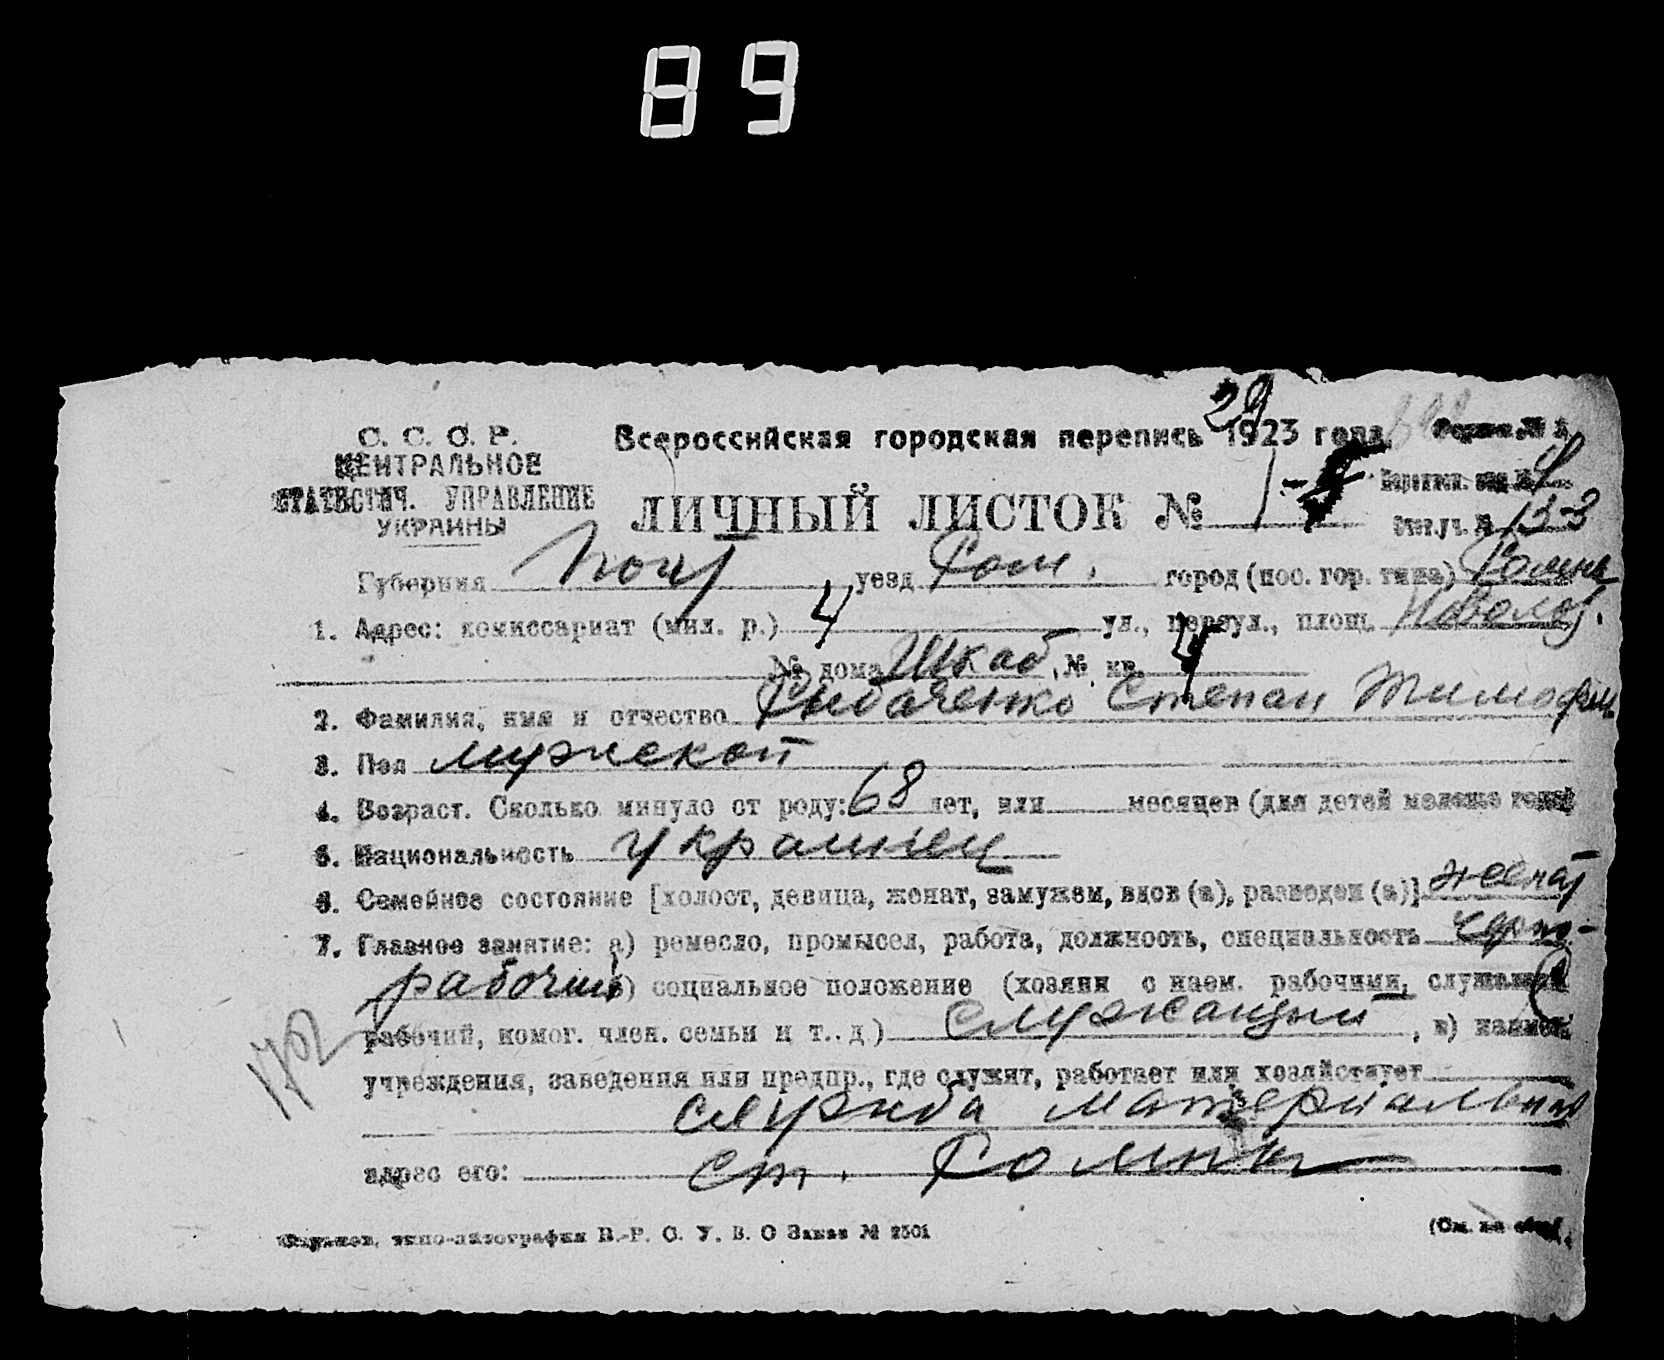 89
29
С. С. С. Р.
ЦЕНТРАЛЬНОЕ
СТАТИСТИЧ. УПРАВЛЕНИЕ
УКРАИНЫ
Всероссийская городская перепись 1923 года.
Форма № 2
ЛИЧНЫЙ ЛИСТОК № 1-
Стат.уч. № 13-3
Губерния уезд Ром. город (пос. гор. типа) Ромны
1. Адрес: комиссариат (мил. р.) 4 ул., переул., площ.
№ дома Шкаб № кв. 4
2. Фамилия, имя и отчество Рыбаченко Степан Тимофеи
3. Пол мужской
4. Возраст. Сколько минуло от роду: 68 лет, или месяцев (для детей моложе года)
5. Национальность украинец
6. Семейное состояние [холост, девица, женат, замужем, вдов (а), разведен (а)] женат
7. Главное занятие: а) ремесло, промысел, работа, должность, специальность черно-
рабочий б) социальное положение (хозяин с наем. рабочими, служащий
рабочий, помог. член. семьи и т. д.) служащий, в) наимен.
учреждения, заведения или предпр., где служит, работает или хозяйствует
служба материальная
адрес его: ст. Ромны
типо-литография В.-Р. С. У. В. О Заказ № 2501
(См. на обор.